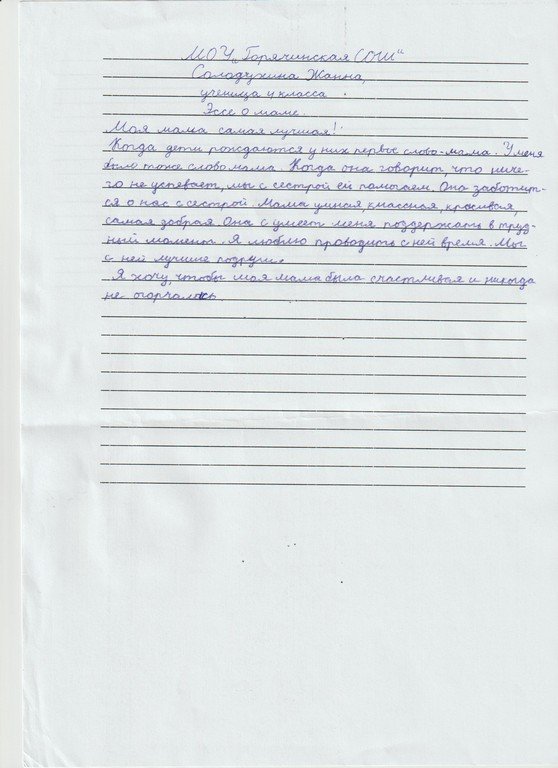 МОУ „Горячинская СОШ"
Солодухина Жанна,
ученица 4 класса
Эссе о маме.
Моя мама самая лучшая!
Когда дети рождаются у них первые слово-мама. У меня
было тоже слово мама. Когда она говорит, что ниче-
го не успевает, мы с сестрой ей помогаем. Она заботит-
ся о нас с сестрой. Мама умная, классная, красивая,
самая добрая. Она с умеет меня поддержать в труд-
ный момент. Я люблю проводить с ней время. Мы
с ней лучшие подруги.
Я хочу, чтобы моя мама была счастливая и никогда
не огорчалась